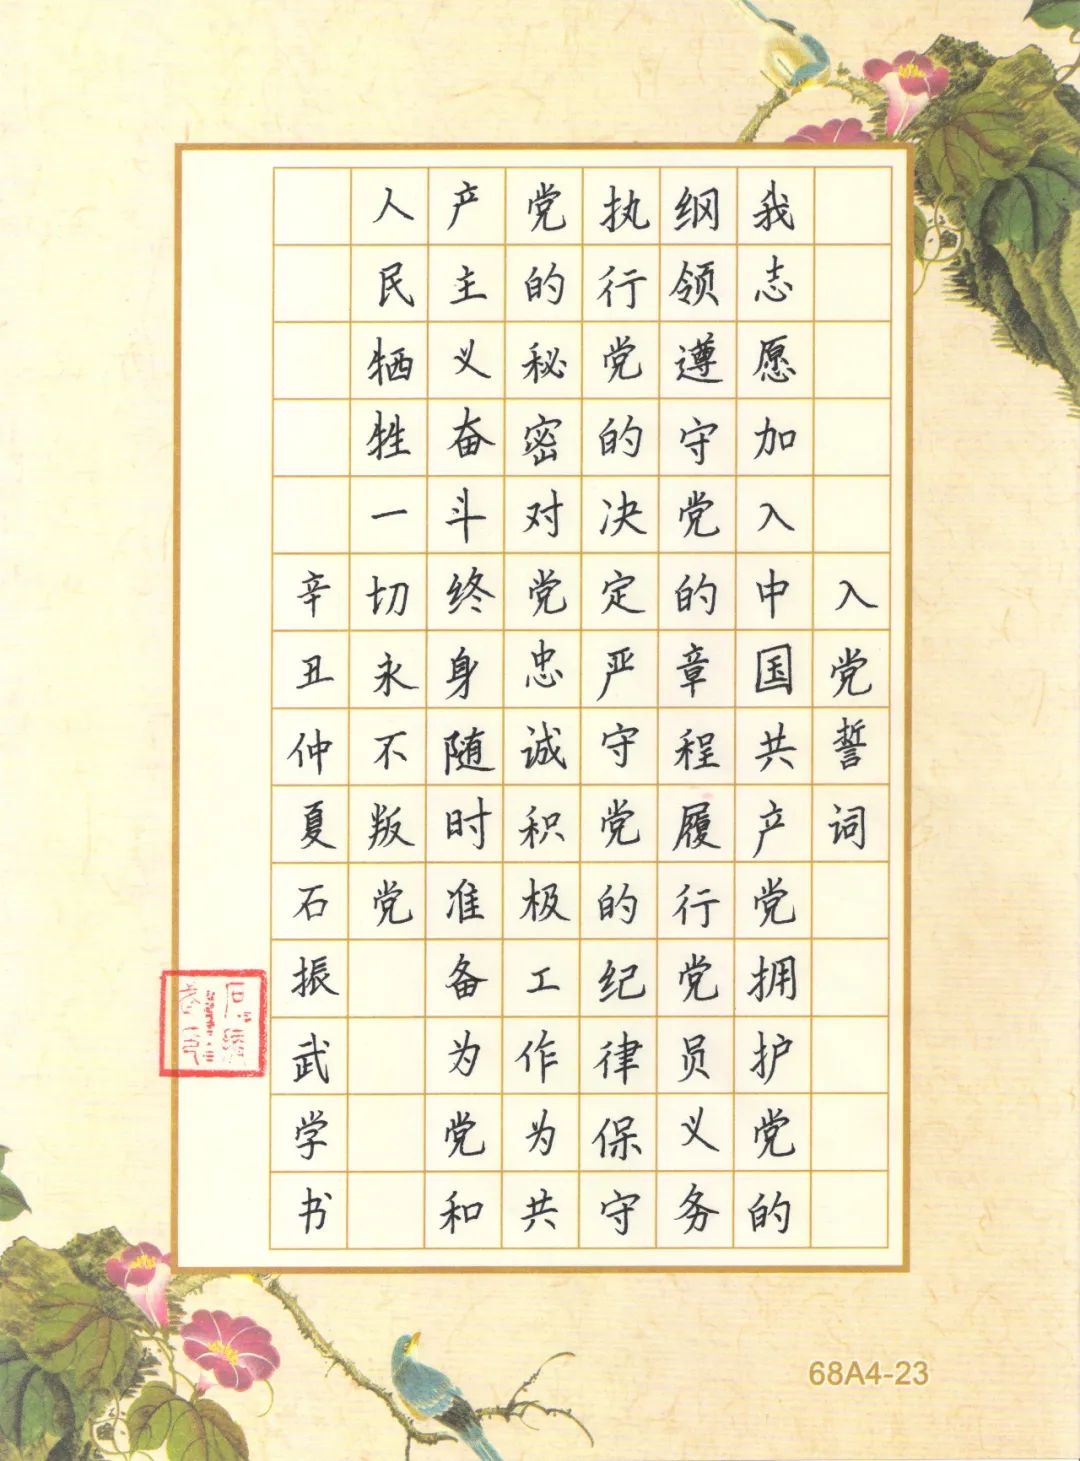 入党誓词
我志愿加入中国共产党拥护党的
纲领遵守党的章程履行党员义务
执行党的决定严守党的纪律保守
党的秘密对党忠诚积极工作为共
产主义奋斗终身随时准备为党和
人民牺牲一切永不叛党
辛丑仲夏石振武学书
68A4-23